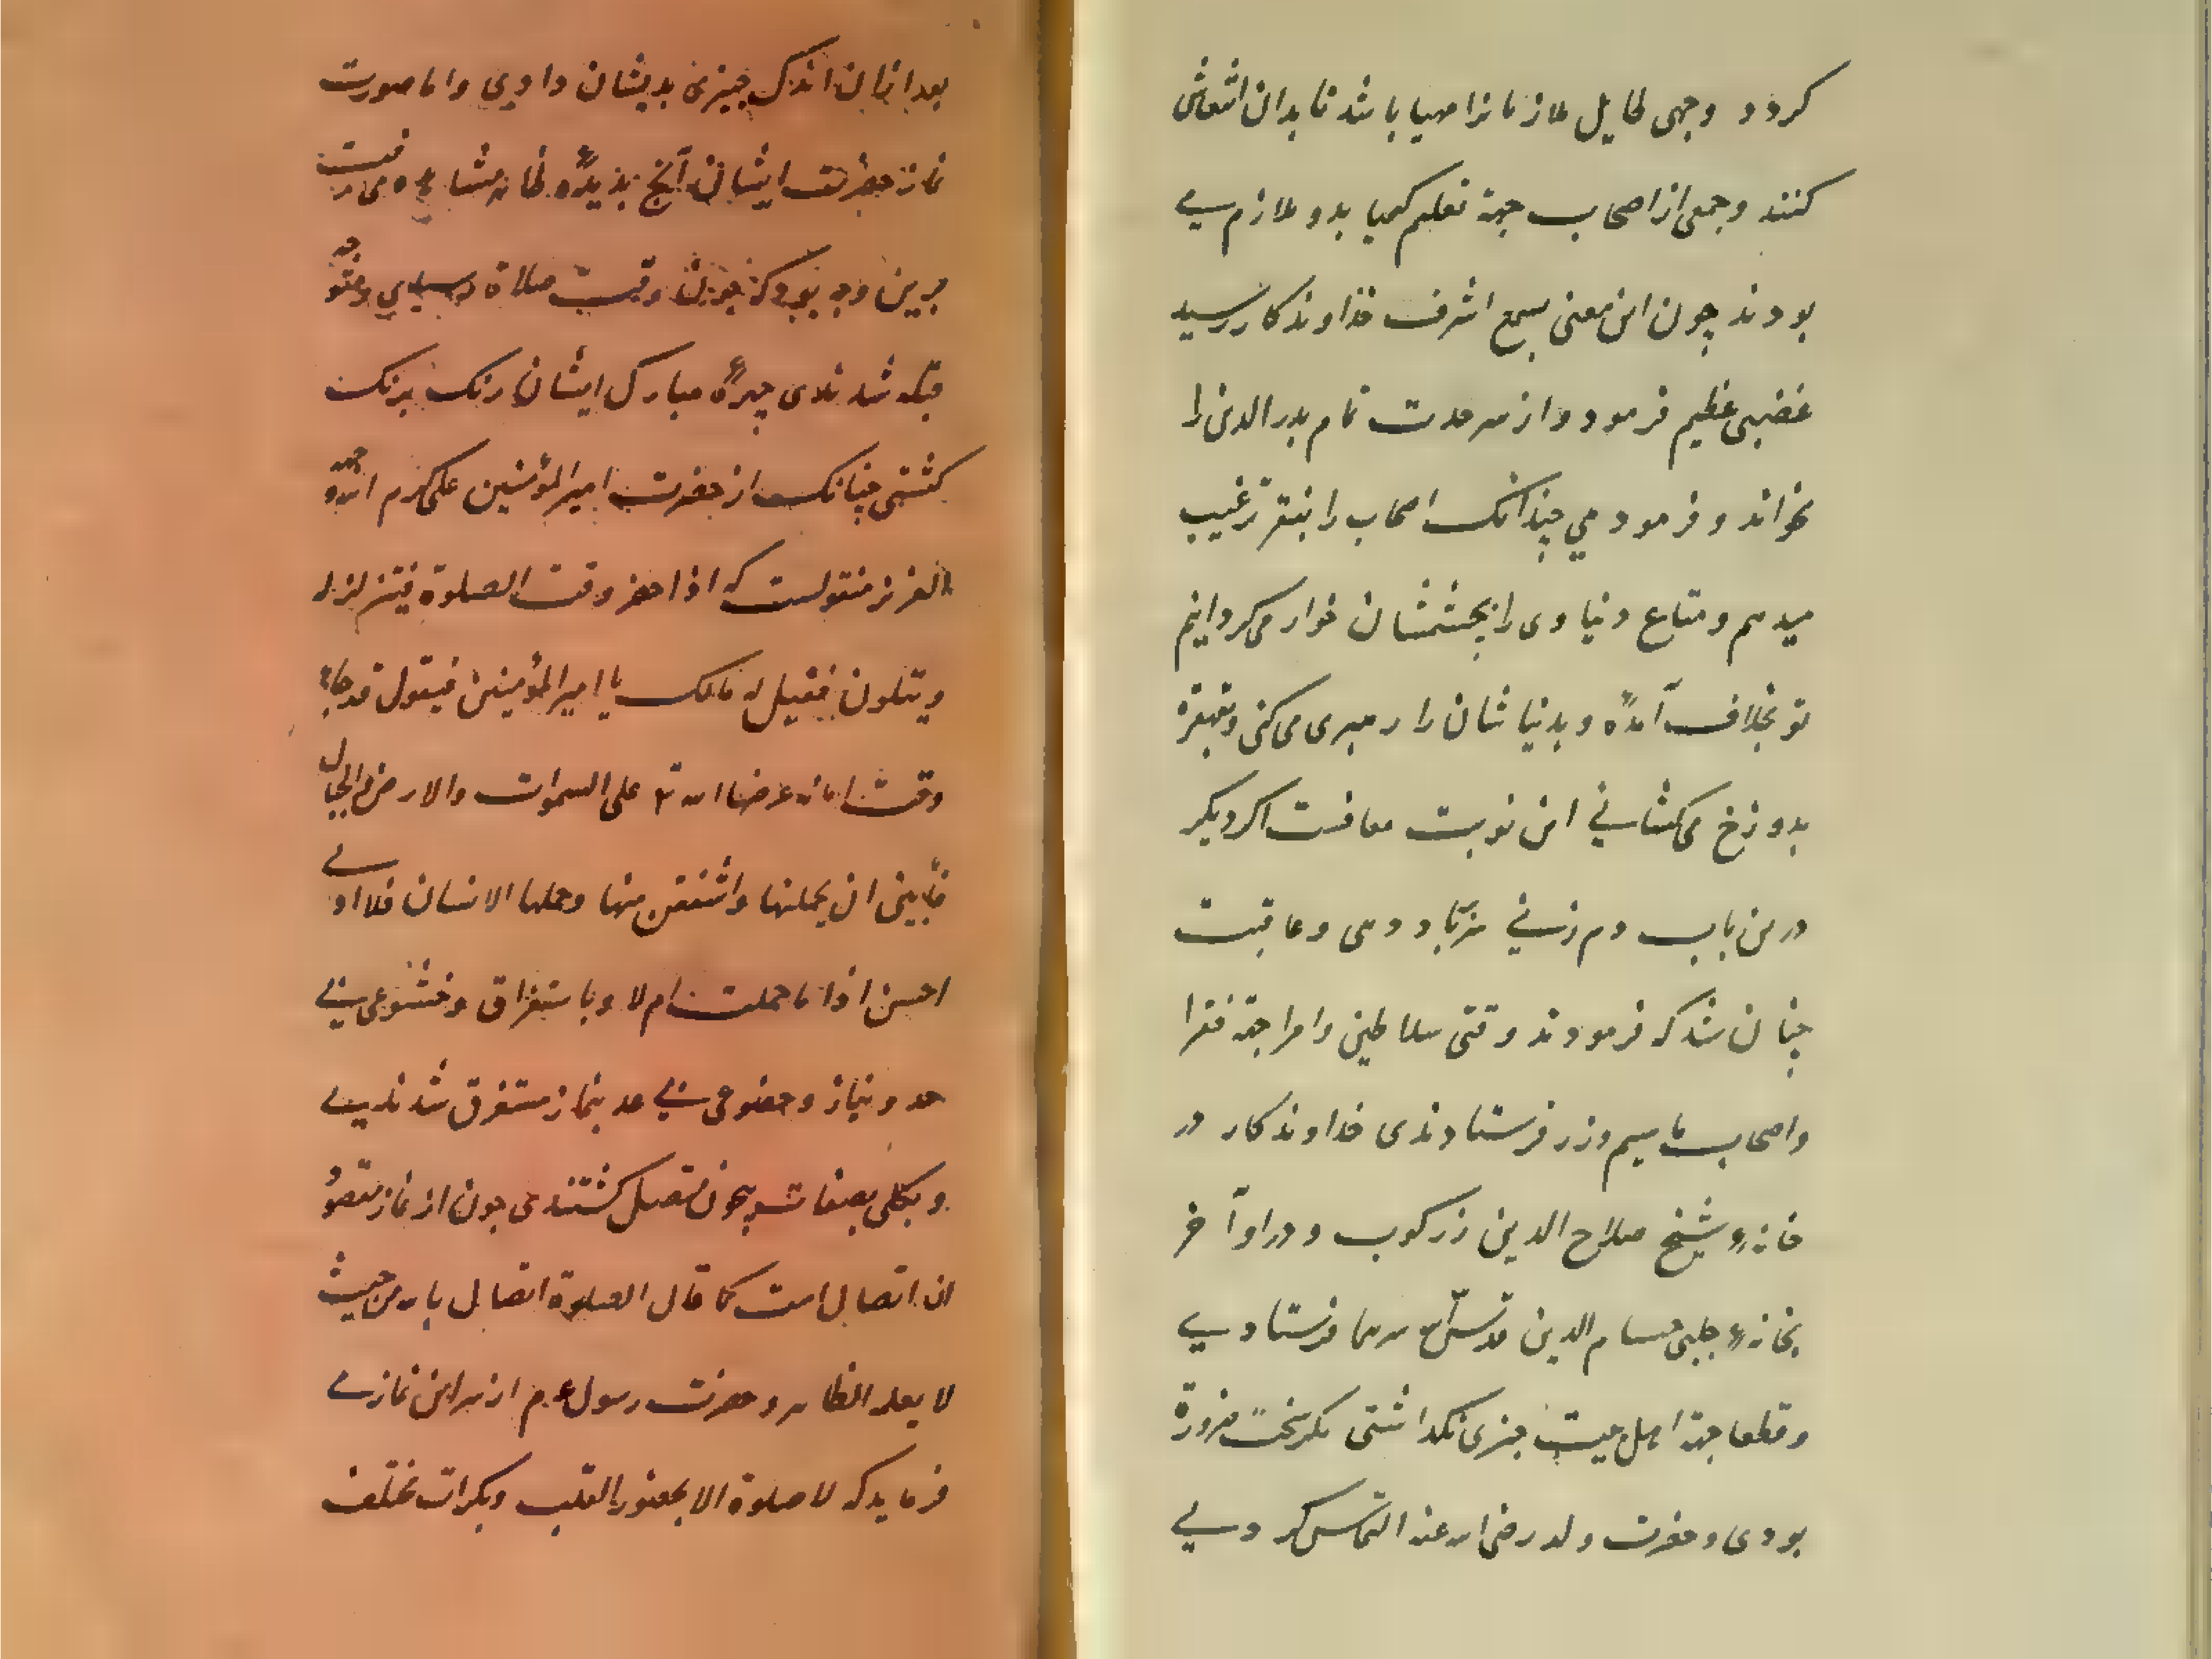 کردد و وجهی طایل ملازمانرا مهیا باشد تا بدان انتعاش
کنند و جمعی از اصحاب جهة تعلیم کیمیا بدو ملازم می
بودند چون این معنی بسمع اشرف خذاوندکار رسید
غضبی عظیم فرمود و از سر حدت تمام بدر الدین را
بخواند و فرمود می چنذانک اصحاب را بفقر ترغیب
میدهم و متاع دنیاوی را بچشمشان خوار می کردانم
تو بخلاف آمدهٔ و بدنیا شان را رهبری می کنی و بقعرهٔ
بدوزخ می کشانی این نوبت معافست اکر دیکر
درین باب دم زنی دهی و عاقبت
چنان شد که فرمودند وقتی سلاطین و امرا جهة فقرا
و اصحاب ما سیم و زر فرستادندی خداوندکار در
خانهٔ شیخ صلاح الدین زرکوب و در اواخر
بخانهٔ چلبی حسام الدین قدس الله سرهما فرستادی
و قطعا جهة اهل بیت چیزی نکداشتی مکر سخت ضرورة
بودی و حضرت ولد رضی الله عنه التماس کردی
بعد از آن اندک چیزی بدیشان دادی و اما صورت
نماز حضرت ایشان آنچ بذیدهٔ ظاهر مشاهده می رفت
برین وجه بود که چون وقت صلاة رسیدی و متوجه
قبله شدندی چهرهٔ مبارک ایشان رنک برنک
کشتی چنانک از حضرت امیر المؤمنین علی کرم الله وجهه
العزیز منقولست که اذا حضر وقت الصلوة فیتزلزل
و یتلون فقیل له مالک یا امیر المؤمنین فیقول قد جاء
وقت امانه عرضها الله تع علی السموات والارض والجبال
فأبین ان یحملنها واشفقن منها وحملها الانسان فلا ادری
احسن اذا ما حملت ام لا و باستغراق و خشوعی بی
حد و نیاز و خضوعی بی عد بنماز مستغرق شدندی
و بکلی بصفات بیچون متصل کشتندی چون از نماز مقصود
آن اتصال است کما قال الصلوة اتصال بالله من حیث
لا یعلمه الظاهر و حضرت رسول عم از سر این نماز می
فرماید که لا صلوة الا بحضور القلب و بکرات مختلف